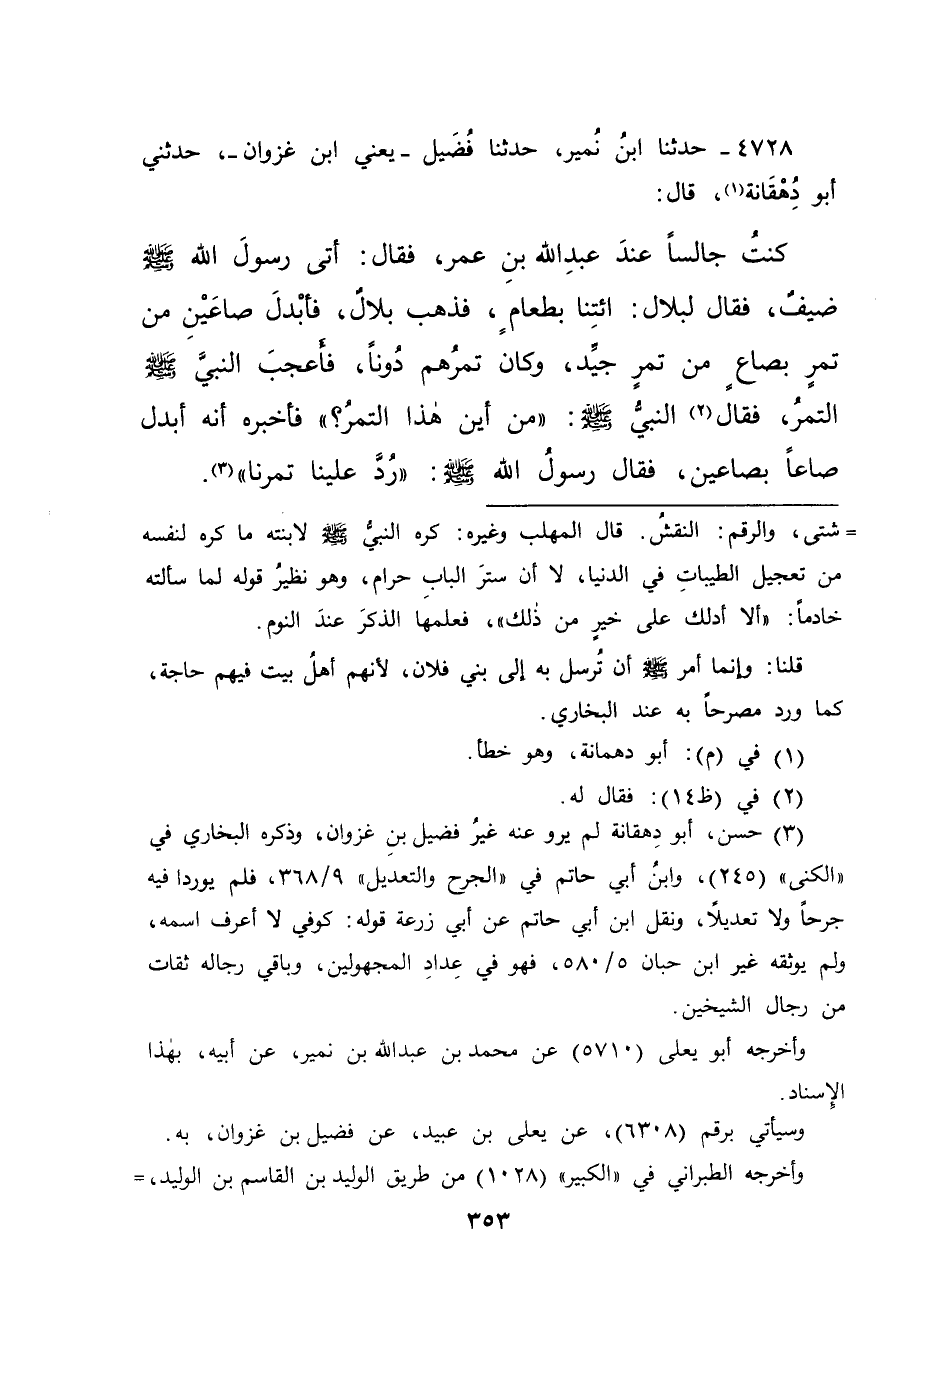 ٤٧٢٨ ـ حدثنا ابنُ نُمير، حدثنا فُضَيل ـ يعني ابن غزوان ـ، حدثني
أبو دُِهْقَانة(١)، قال:
كنتُ جالساً عندَ عبدِالله بنِ عمر، فقال: أتى رسولَ الله ﷺ
ضيفٌ، فقال لبلال: ائتِنا بطعامٍ، فذهب بلالٌ، فأبْدلَ صاعَيْنِ من
تمرٍ بصاعٍ من تمرٍ جيِّد، وكان تمرُهم دُوناً، فأَعجبَ النبيَّ ﷺ
التمرُ، فقال(٢) النبيُّ ﷺ: «من أين هٰذا التمرُ؟» فأخبره أنه أبدل
صاعاً بصاعين، فقال رسولُ الله ﷺ: «رُدَّ علينا تمرنا»(٣).
= شتى، والرقم: النقشُ. قال المهلب وغيره: كره النبيُّ ﷺ لابنته ما كره لنفسه
من تعجيل الطيباتِ في الدنيا، لا أن سترَ البابِ حرام، وهو نظيرُ قوله لما سألته
خادماً: «ألا أدلك على خيرٍ من ذٰلك»، فعلمها الذكرَ عندَ النوم.
قلنا: وإنما أمر ﷺ أن تُرسل به إلى بني فلان، لأنهم أهلُ بيت فيهم حاجة،
كما ورد مصرحاً به عند البخاري.
(١) في (م): أبو دهمانة، وهو خطأ.
(٢) في (ظ١٤): فقال له.
(٣) حسن، أبو دِهقانة لم يرو عنه غيرُ فضيل بنِ غزوان، وذكره البخاري في
«الكنى» (٢٤٥)، وابنُ أبي حاتم في «الجرح والتعديل» ٣٦٨/٩، فلم يوردا فيه
جرحاً ولا تعديلًا، ونقل ابن أبي حاتم عن أبي زرعة قوله: كوفي لا أعرف اسمه،
ولم يوثقه غير ابن حبان ٥٨٠/٥، فهو في عِدادِ المجهولين، وباقي رجاله ثقات
من رجال الشيخين.
وأخرجه أبو يعلى (٥٧١٠) عن محمد بن عبدالله بن نمير، عن أبيه، بهٰذا
الإِسناد.
وسيأتي برقم (٦٣٠٨)، عن يعلى بن عبيد، عن فضيل بن غزوان، به.
وأخرجه الطبراني في «الكبير» (١٠٢٨) من طريق الوليد بن القاسم بن الوليد، =
٣٥٣